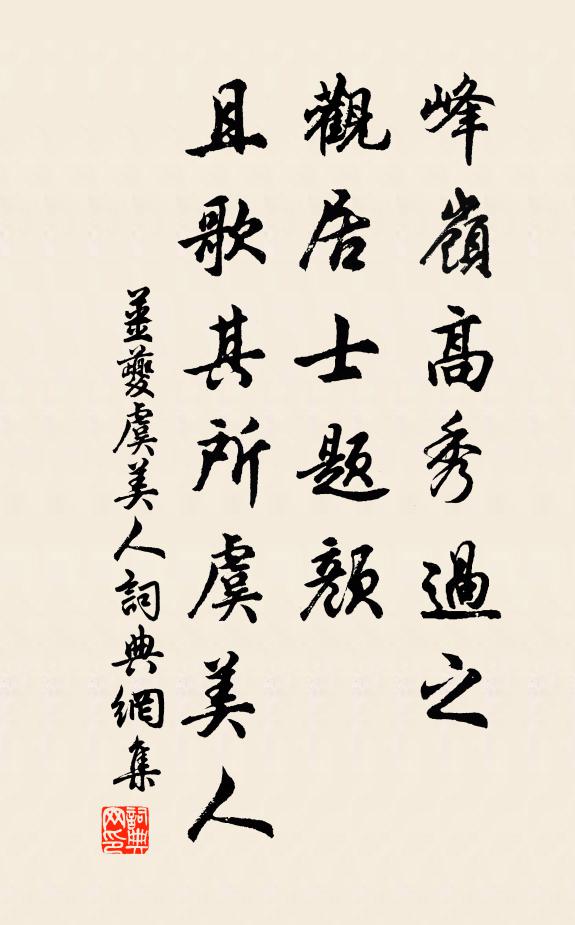 峰嶺高秀過之
觀居士題顏
且歌其所虞美人
薑夔虞美人詞典網集
詞典网印